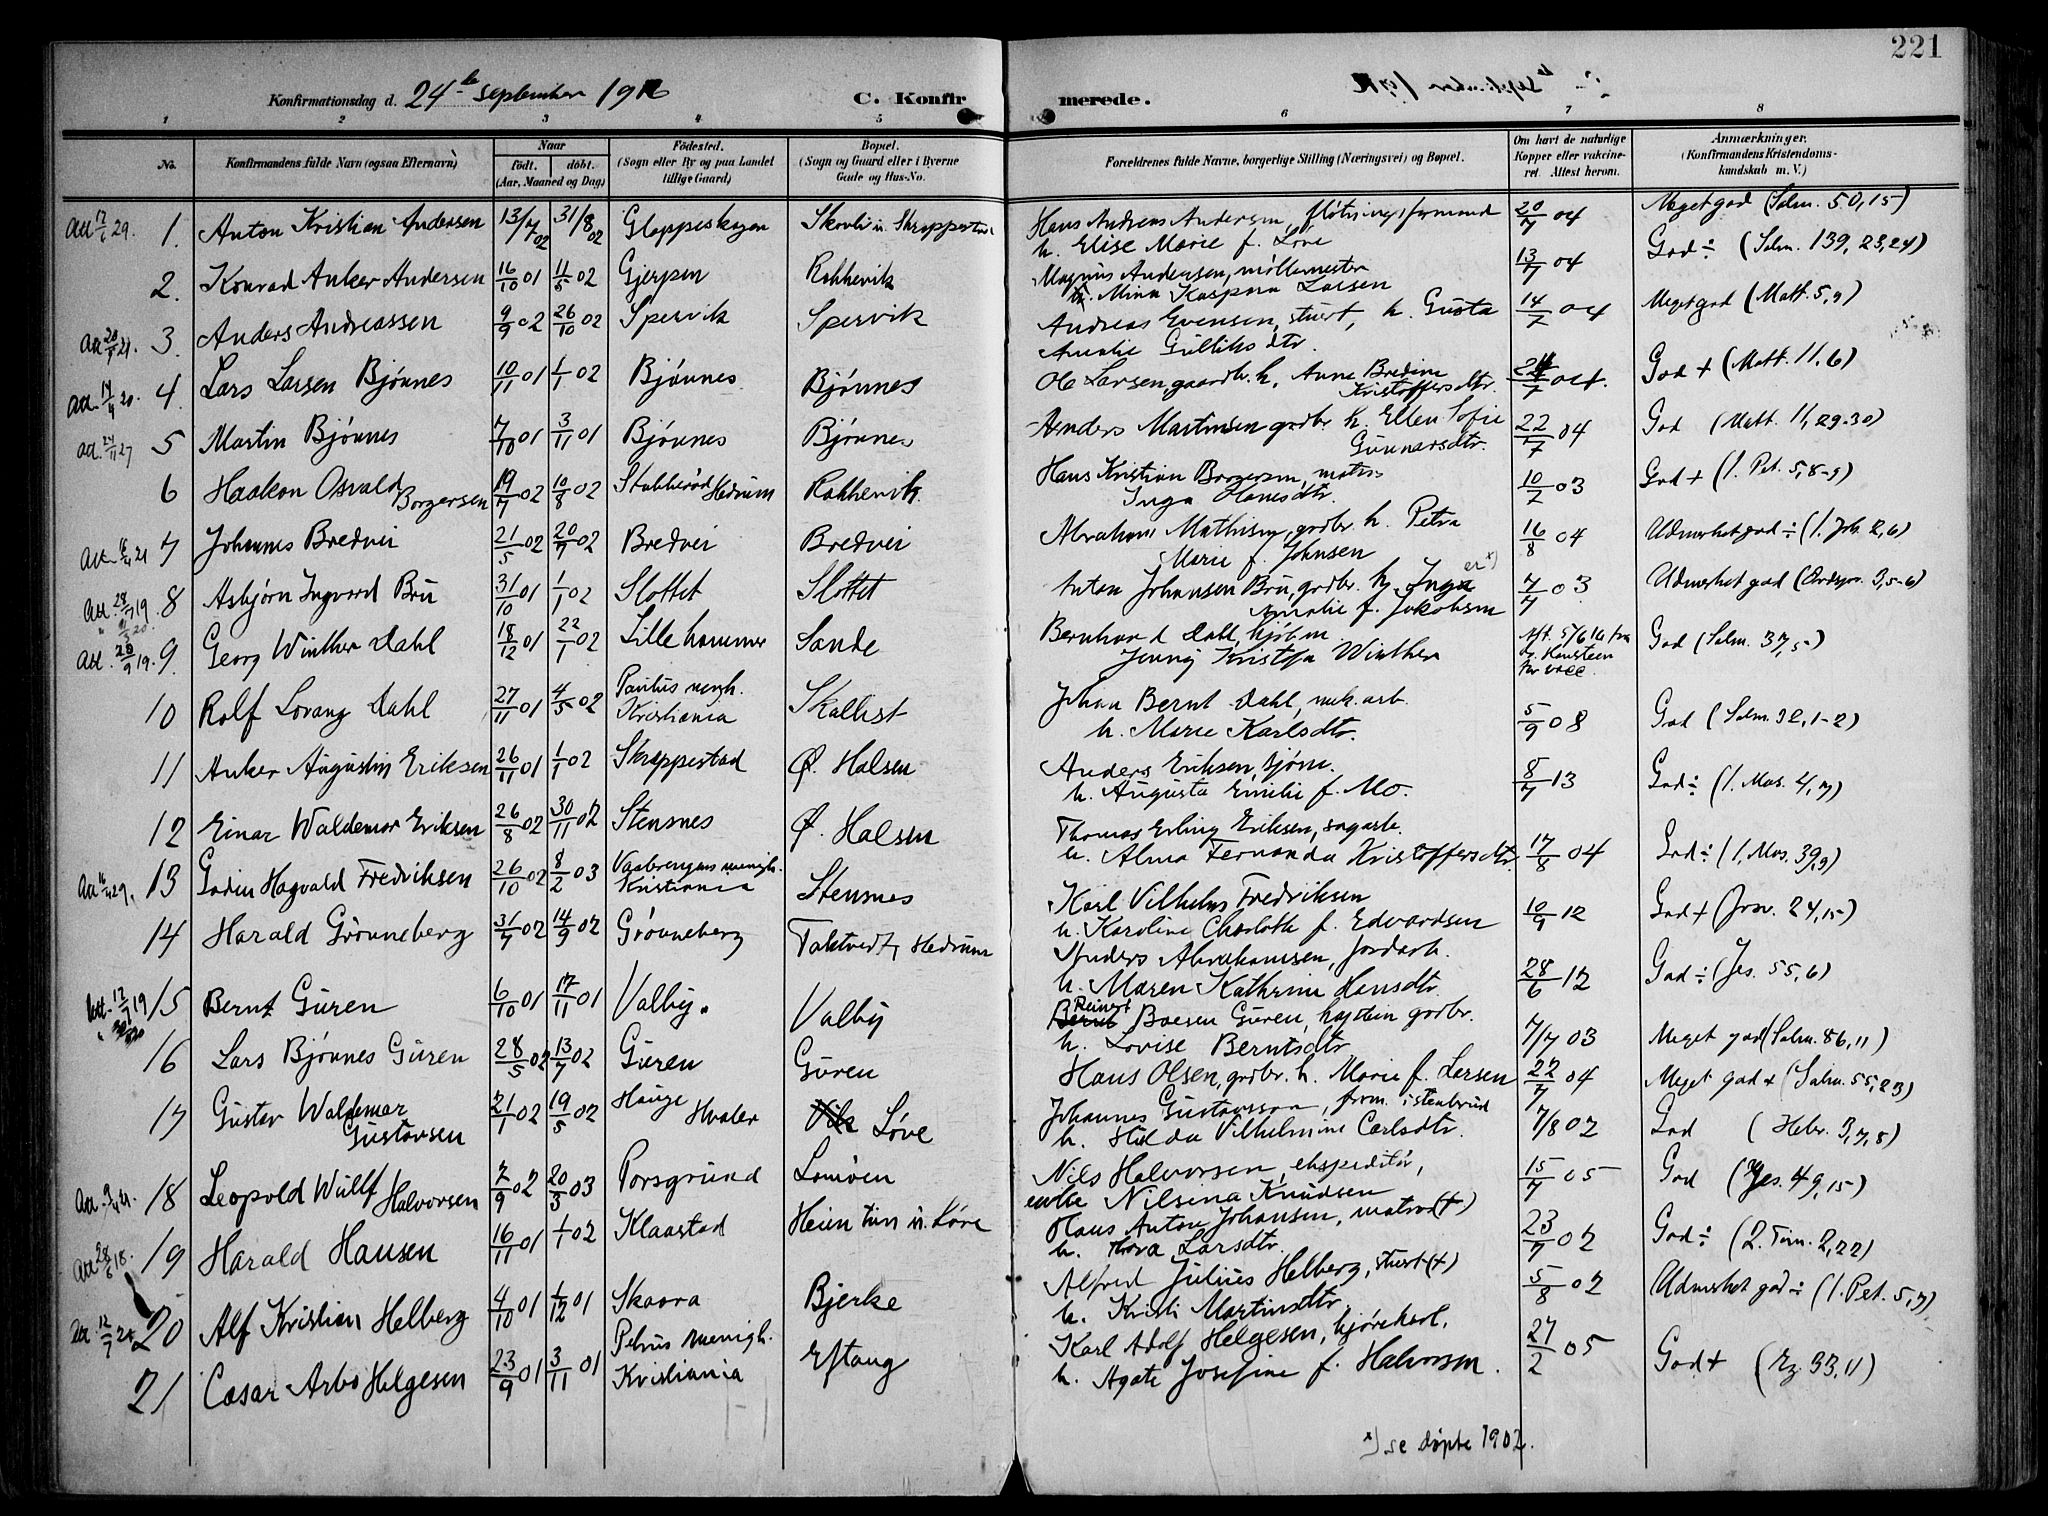 221
Konfirmationsdag d. 24de september 19
C. Konfirmerede.
1 2 3 4 5 6 7 8
No. Konfirmandens fulde Navn (ogsaa Efternavn) Naar født. døbt. (Aar, Maaned og Dag) Fødested. (Sogn eller By og paa Landet tillige Gaard) Bopæl. (Sogn og Gaard eller i Byerne Gade og Hus-No. Forældrenes fulde Navne, borgerlige Stilling (Næringsvei) og Bopæl. Om havt de naturlige Kopper eller vakcineret. Attest herom. Anmærkninger. (Konfirmandens Kristendomskundskab m. V.)
Att 17/6 29. 1. Anton Kristian Andersen 13/7 02 31/8 02 Gloppeskogen Skovli u. Skreppestad Hans Andreas Andersen, fløtningsformand h. Elise Marie f. Løve 20/7 04 Meget god (Salm. 50,15)
2. Konrad Anker Andersen 16/10 01 11/5 02 Gjerpen Rakkevik Magnus Andersen, møllemester h. Mina Kaspara Larsen 13/7 04 God ÷ (Salm. 139, 23,24)
3. Anders Andreassen 9/9 02 26/10 02 Spervik Spervik Andreas Evensen, stuert, h. Gusta Amalie Gulliksdtr. 14/7 04 Meget god (Matt. 5,9)
4. Lars Larsen Bjønnes 10/11 01 1/1 02 Bjønnes Bjønnes Ole Larsen gaardbr. h. Anne Bredine Kristoffersdtr. 04. God + (Matt. 11,6)
5 Martin Bjønnes 7/10 01 3/11 01 Bjønnes Bjønnes Anders Martinsen grdbr. h. Ellen Sofie Gunnarsdtr. 22/7 04 God (Matt. 11, 29-30)
6 Haakon Osvald Borgersen 19/7 02 10/8 02 Stubberød Hedrum Rakkevik. Hans Kristian Borgersen, matr. Inga Hansdtr. 10/7 03 God + (1. Pet. 5,8-9)
7 Johannes Bredvei 21/5 02 20/7 02 Bredvei Bredvei Abraham Mathisen, grdbr. h. Petra Marie f. Johnsen 16/8 04 Udmerket god ÷ (1. Joh. 2,6)
8 Asbjørn Ingvard Bru 31/10 01 1/1 02 Slottet Slottet Anton Johansen Bru, grdbr. h. Inga x) Amalie f. Jakobsen 7/7 03 Udmerket god (Ordspr. 3,5-6)
9. Georg Winther Dahl 18/12 01 22/1 02 Lillehammer Sande Bernhard Dahl, kjøbm. Jenny Kristofa Winther God (Salm. 37,5)
10 Rolf Lorang Dahl 27/11 01 4/5 02 Paulus menigh. Kristiania Skallist Johan Bernt Dahl, mek. arb. h. Marie Karlsdtr. 5/9 08 God (Salm. 32, 1-2)
11 Anker Augustin Eriksen 26/11 01 1/1 02 Skreppestad Ø. Halsen Anders Eriksen, sjøm. h. Augusta Emilie f. Mo. 8/7 13 God ÷ (1. Mos. 4,7)
12 Einar Waldemar Eriksen 26/8 02 30/11 02 Stensnes Ø. Halsen Thomas Erling Eriksen, sagarb. h. Alma Fernanda Kristoffersdtr. 17/8 04 God ÷ (1. Mos. 39,9)
13 Godin Hagvald Fredriksen 26/10 02 8/2 03 Vaalerengens menigh. Kristiania Stensnes Karl Vilhelm Fredriksen h. Karoline Charlotte f. Edvardsen 10/9 12 God + (Josv. 24,15)
14 Harald Grønneberg 31/7 02 14/9 02 Grønneberg Taktvedt, Hedrum Anders Abrahamsen, jordarb. h. Maren Kathrine Hansdtr. 28/6 12 God ÷ (Jes. 55,6)
15 Bernt Guren 6/10 01 17/11 01 Valby. Valby Reinert Boesen Guren, kaptein grdbr. h. Lovise Berntsdtr 7/7 03 Meget god (Salm. 86,11)
16 Lars Bjønnes Guren 28/5 02 13/7 02 Guren Guren Hans Olsen, grdbr. h. Marie f. Larsen 22/7 04 Meget god + (Salm. 55,23)
17 Gustav Waldemar Gustavsen 21/1 02 19/5 02 Hauge Hvaler Løve Johannes Gustavsson, form. i stenbrud h. Hilda Vilhelmine Carlsdtr. 7/8 02 God (Hebr. 3,7,8)
18 Leopold Wulff Halvorsen 7/9 02 20/3 03 Porsgrund Lomøen Nils Halvorsen, ekspeditør, enke Nilsina Knudsen 15/7 05 God (Jes. 49,15)
19 Harald Hansen 16/11 01 1/1 02 Klaastad Heien tun u. Løve Hans Anton Johansen, matros (+) h. Thora Larsdtr. 23/7 02 God ÷ (2. Tim. 2,22)
20 Alf Kristian Helberg 4/10 01 1/12 01 Skaara Bjerke Alfred Julius Helberg, stuert (+) h. Kristi Martinsdtr. 5/8 02 Udmerket god ÷ (1. Pet. 5,7)
21 Cæsar Arbo Helgesen 23/9 01 3/11 01 Petrus menigh. Kristiania Eftang Karl Adolf Helgesen, kjørekarl. h. Agate Josefine f. Halvorsen. 27/2 05 God + (Ez. 33,11)
x) se døpte 1902.